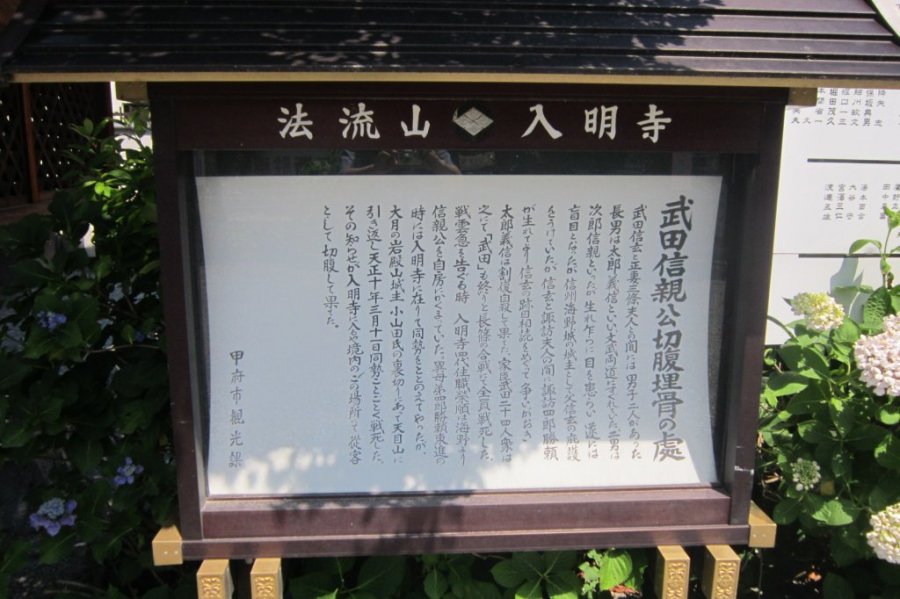 法流山 入明寺
武田信親公切腹埋骨の處
武田信玄と正妻三條夫人との間には男子二人があった
長男は太郎義信といい文武両道にすぐれていた二男は
次郎信親といったが生れ乍らに目を患らい遂には
盲目となったが信州海野城の城主として父信玄の庇護
をうけていたが信玄と諏訪夫人の間に諏訪四郎勝頼
が生れており信玄の跡目相続をめぐって争いがおき
太郎義信は割復自殺し果てた家臣武田二十四人衆は
之にて「武田」も終りと長篠の合戦で全員戦死した。
戦雲急を告ぐる時 入明寺四代住職栄順は海野より
信親公を自房にかくまっていた。異母弟四郎勝頼東進の
時には入明寺に在りて同勢をととのえてやったが、
大月の岩殿山城主 小山田氏の裏切りにあって天目山に
引き返し天正十年三月十一日同勢ことごとく戦死した。
その知らせが入明寺に入るや境内のこの場所にて従容
として切腹して果てた。
甲府市観光課